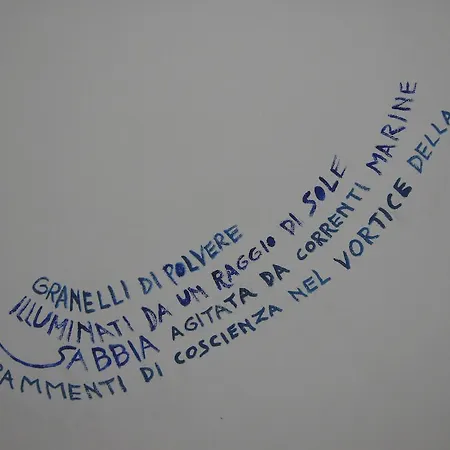 GRANELLI DI POLVERE
ILLUMINATI DA UN RAGGIO DI SOLE
SABBIA AGITATA DA CORRENTI MARINE
DI COSCIENZA NEL VORTICE DELLA